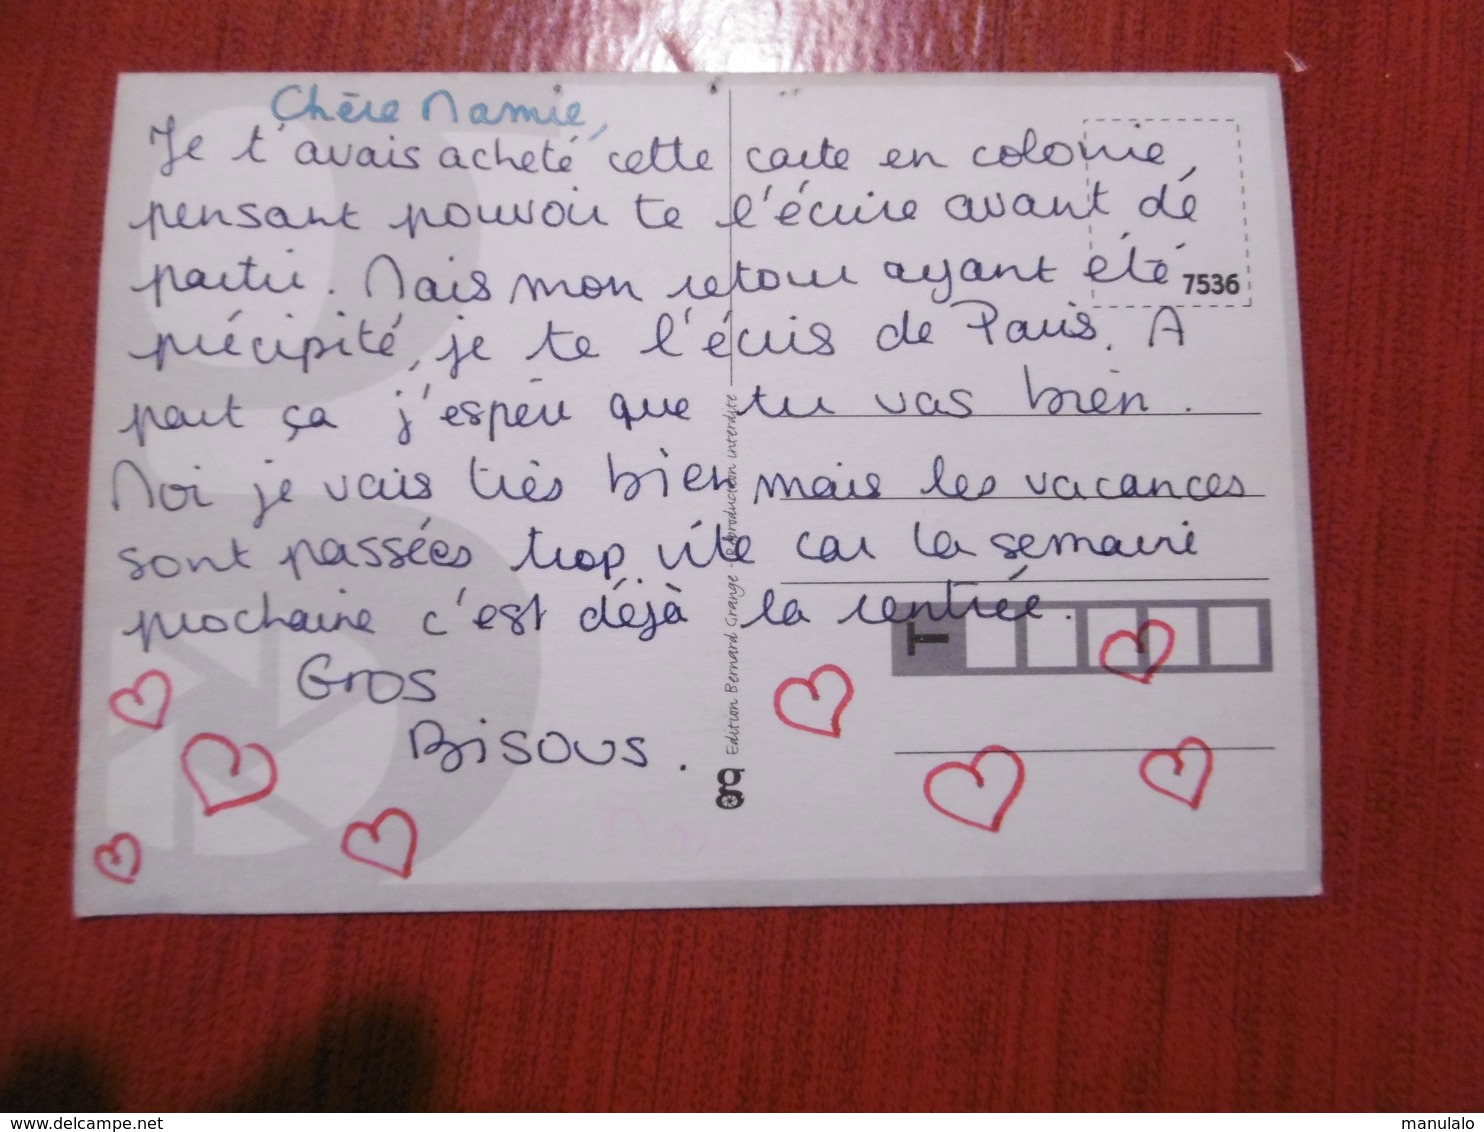 Chère Mamie,
Je t'avais acheté cette carte en colonie,
pensant pouvoir te l'écrire avant de
partir. Mais mon retour ayant été
précipité, je te l'écris de Paris. A
part ça j'espère que tu vas bien.
Moi je vais très bien mais les vacances
sont passées trop vite car la semaine
prochaine c'est déjà la rentrée.
Gros
Bisous.
7536
T
Edition Bernard Grange - Reproduction interdite
www.delcampe.net
manulalo